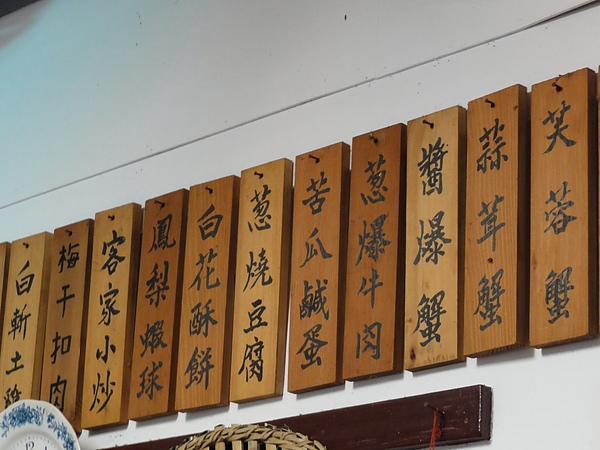 芙蓉蟹
蒜茸蟹
醬爆蟹
蔥爆牛肉
苦瓜鹹蛋
蔥燒豆腐
白花酥餅
鳳梨蝦球
客家小炒
梅干扣肉
白斬土雞